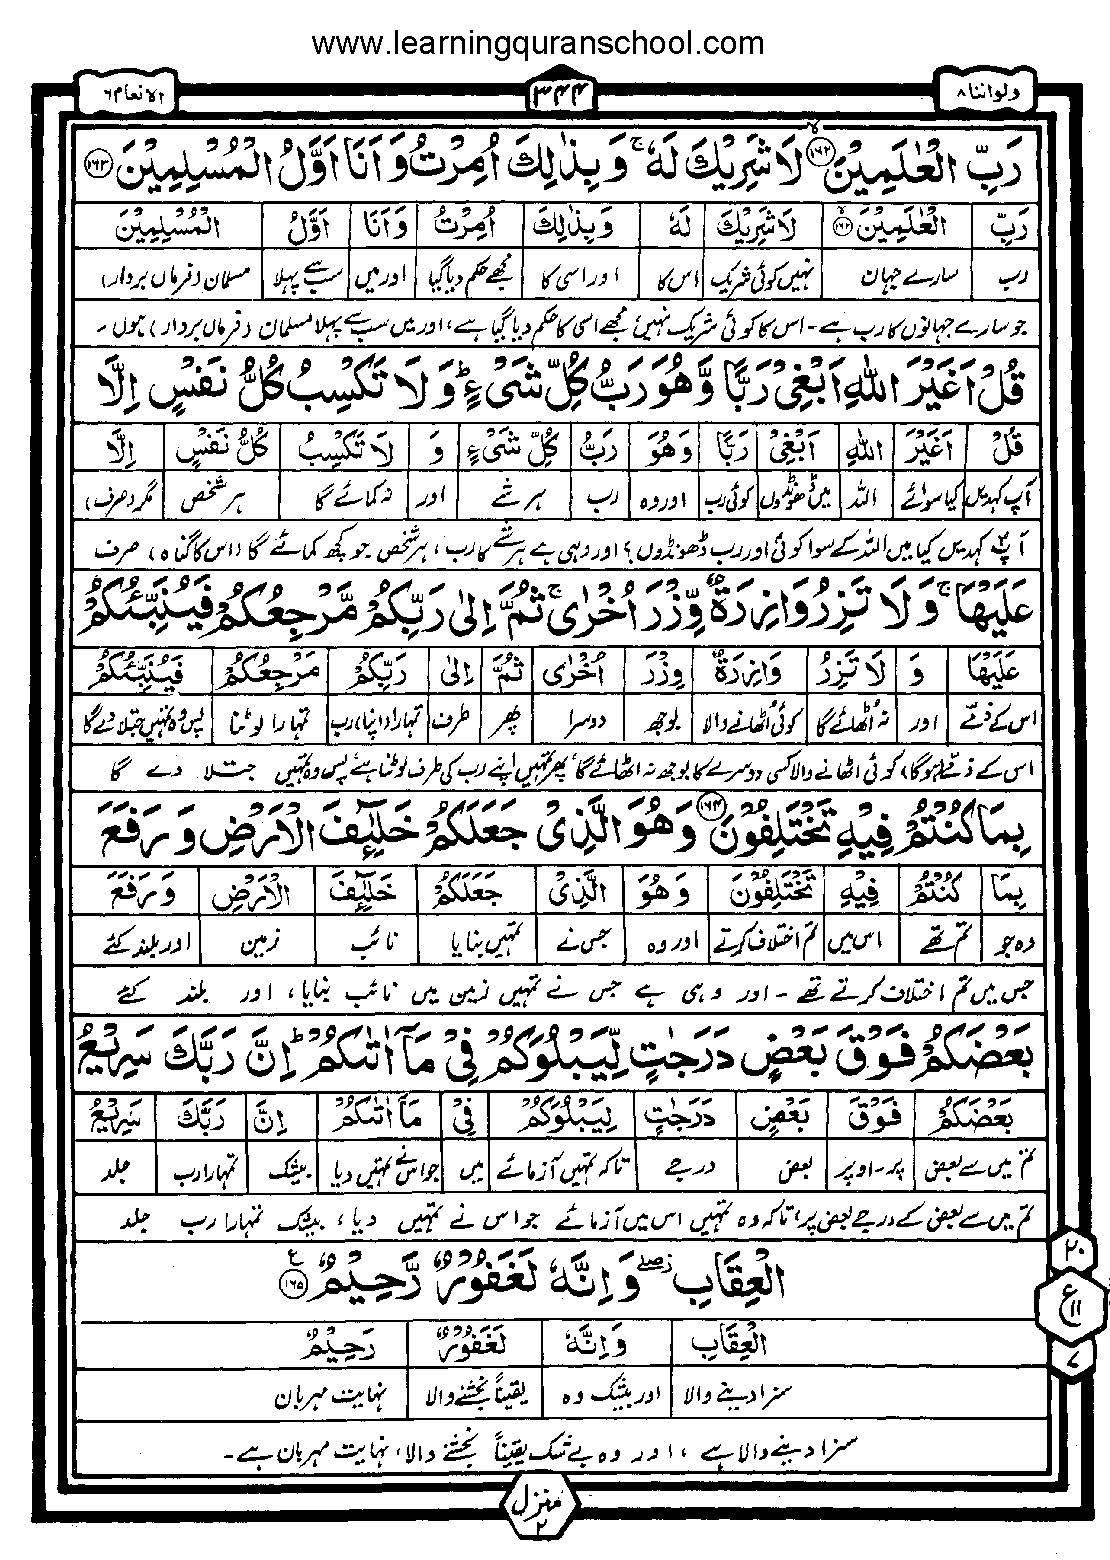 www.learningquranschool.com
ولواننا ۸
۳۴۴
الانعام ۶
رَبِّ الْعٰلَمِيْنَ ﴿۱۶۲﴾ لَا شَرِيْكَ لَهٗ ۚ وَ بِذٰلِكَ اُمِرْتُ وَ اَنَا اَوَّلُ الْمُسْلِمِيْنَ ﴿۱۶۳﴾
رَبِّ الْعٰلَمِيْنَ ﴿۱۶۲﴾ لَا شَرِيْكَ لَهٗ وَبِذٰلِكَ اُمِرْتُ وَ اَنَا اَوَّلُ الْمُسْلِمِيْنَ
رب سارے جہان نہیں کوئی شریک اس کا اور اسی کا مجھے حکم دیا گیا اور میں سب سے پہلا مسلمان (فرماں بردار)
جو سارے جہانوں کا رب ہے۔ اس کا کوئی شریک نہیں، مجھے اسی کا حکم دیا گیا ہے، اور میں سب سے پہلا مسلمان (فرماں بردار) ہوں۔
قُلْ اَغَيْرَ اللّٰهِ اَبْغِيْ رَبًّا وَّ هُوَ رَبُّ كُلِّ شَيْءٍ ؕ وَ لَا تَكْسِبُ كُلُّ نَفْسٍ اِلَّا
قُلْ اَغَيْرَ اللّٰهِ اَبْغِيْ رَبًّا وَ هُوَ رَبُّ كُلِّ شَيْءٍ وَ لَا تَكْسِبُ كُلُّ نَفْسٍ اِلَّا
آپ کہدیں کیا سوائے اللہ میں ڈھونڈوں کوئی رب اور وہ رب ہر شے اور نہ کمائے گا ہر شخص مگر (صرف)
آپ کہدیں کیا میں اللہ کے سوا کوئی اور رب ڈھونڈوں؟ اور وہی ہے ہر شے کا رب، ہر شخص جو کچھ کمائے گا (اس کا گناہ) صرف
عَلَيْهَا ۚ وَ لَا تَزِرُ وَازِرَةٌ وِّزْرَ اُخْرٰى ۚ ثُمَّ اِلٰى رَبِّكُمْ مَّرْجِعُكُمْ فَيُنَبِّئُكُمْ
عَلَيْهَا وَ لَا تَزِرُ وَازِرَةٌ وِزْرَ اُخْرٰى ثُمَّ اِلٰى رَبِّكُمْ مَرْجِعُكُمْ فَيُنَبِّئُكُمْ
اس کے ذمے اور نہ اُٹھائے گا کوئی اُٹھانے والا بوجھ دوسرا پھر طرف تمہارا (اپنا) رب تمہارا لوٹنا پس وہ تمہیں جتلا دے گا
اس کے ذمے ہوگا، کوئی اٹھانے والا کسی دوسرے کا بوجھ نہ اٹھائے گا، پھر تمہیں اپنے رب کی طرف لوٹنا ہے پس وہ تمہیں جتلا دے گا
بِمَا كُنْتُمْ فِيْهِ تَخْتَلِفُوْنَ ﴿۱۶۴﴾ وَ هُوَ الَّذِيْ جَعَلَكُمْ خَلٰٓئِفَ الْاَرْضِ وَ رَفَعَ
بِمَا كُنْتُمْ فِيْهِ تَخْتَلِفُوْنَ وَ هُوَ الَّذِيْ جَعَلَكُمْ خَلٰٓئِفَ الْاَرْضِ وَ رَفَعَ
وہ جو تم تھے اس میں تم اختلاف کرتے اور وہ جس نے تمہیں بنایا نائب زمین اور بلند کئے
جس میں تم اختلاف کرتے تھے۔ اور وہی ہے جس نے تمہیں زمین میں نائب بنایا، اور بلند کئے
بَعْضَكُمْ فَوْقَ بَعْضٍ دَرَجٰتٍ لِّيَبْلُوَكُمْ فِيْ مَاۤ اٰتٰىكُمْ ؕ اِنَّ رَبَّكَ سَرِيْعُ
بَعْضَكُمْ فَوْقَ بَعْضٍ دَرَجٰتٍ لِيَبْلُوَكُمْ فِيْ مَاۤ اٰتٰىكُمْ اِنَّ رَبَّكَ سَرِيْعُ
تم میں سے بعض پر۔اوپر بعض درجے تاکہ تمہیں آزمائے میں جو اس نے تمہیں دیا بیشک تمہارا رب جلد
تم میں سے بعض کے درجے بعض پر، تاکہ وہ تمہیں اس میں آزمائے جو اس نے تمہیں دیا، بیشک تمہارا رب جلد
الْعِقَابِ ۖ وَ اِنَّهٗ لَغَفُوْرٌ رَّحِيْمٌ ﴿۱۶۵﴾
الْعِقَابِ وَ اِنَّهٗ لَغَفُوْرٌ رَحِيْمٌ
سزا دینے والا اور بیشک وہ یقیناً بخشنے والا نہایت مہربان
سزا دینے والا ہے، اور وہ بے شک یقیناً بخشنے والا، نہایت مہربان ہے۔
۲۰
ع
۱۱
۷
منزل
۲